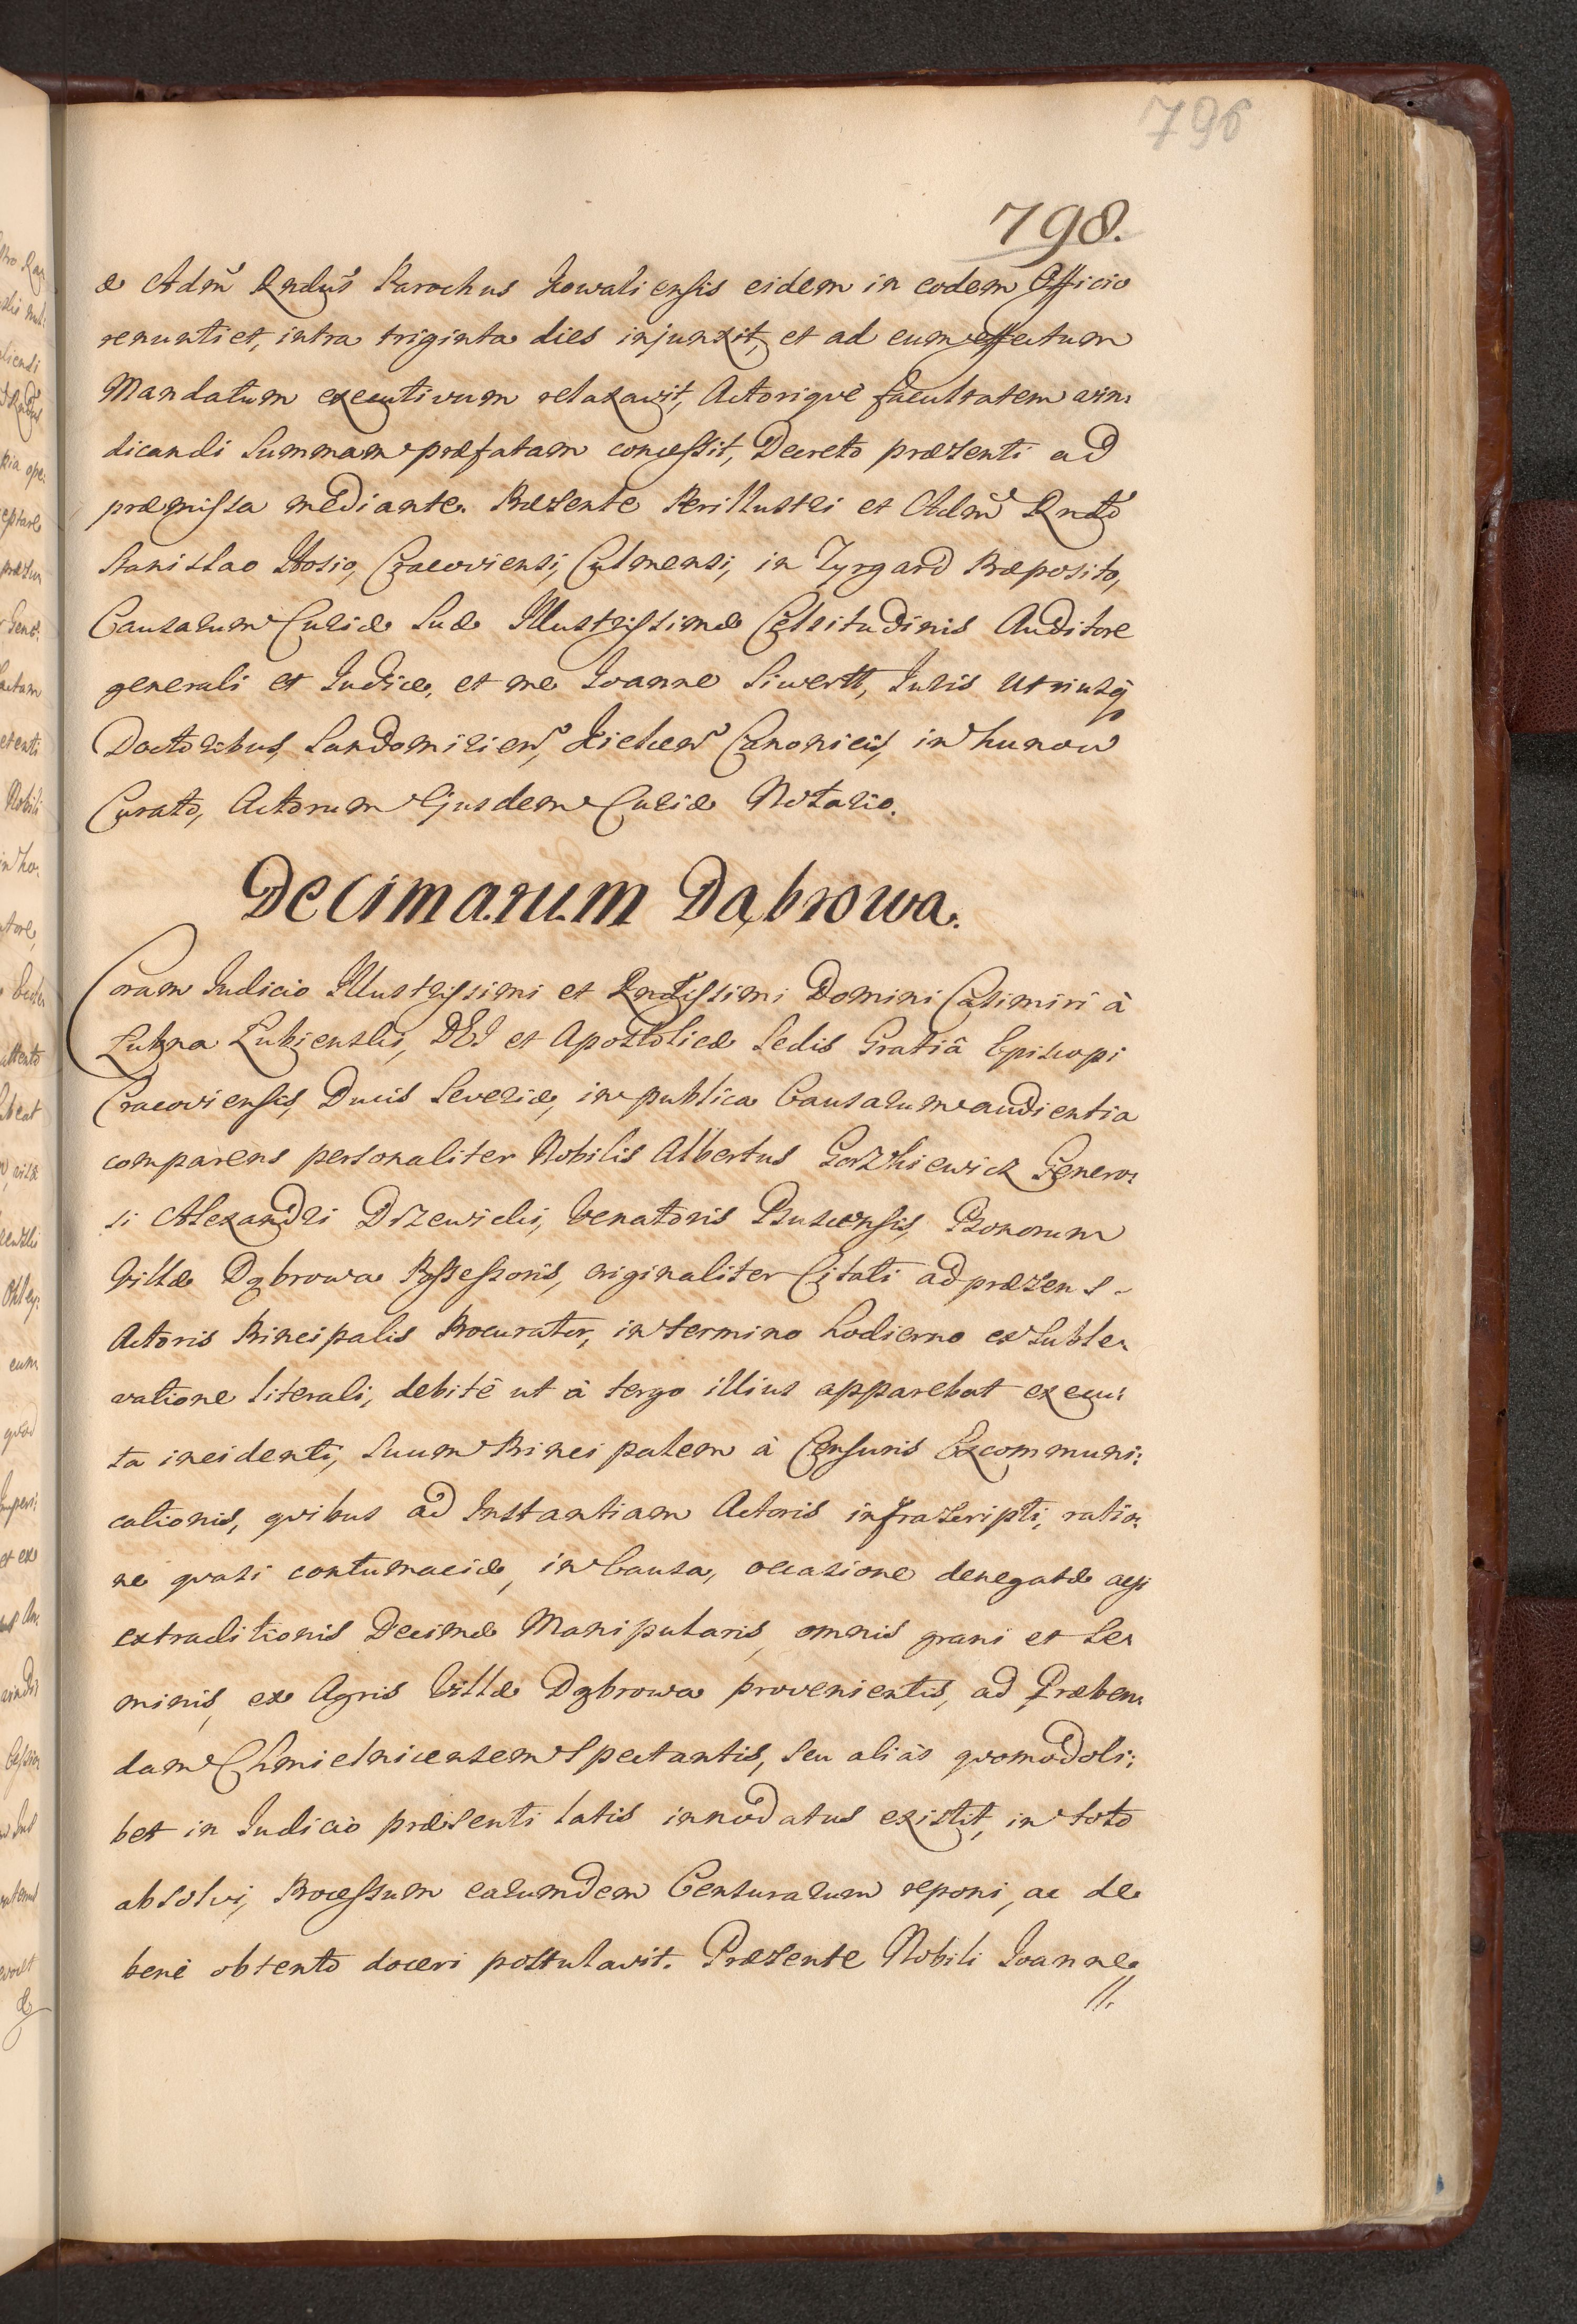 796
798.
æ Adm̃ Rndus Parochus Kowaliensis eidem in eodem Officio
renuntiet, intra triginta dies injunxit, et ad eum effectum
Mandatum executivum relaxavit, Actorique facultatem vin:
dicandi Summam præfatam concessit, Decreto præsenti ad
præmissa mediante. Præsente Perillustri et Adm̃ Rndo
Stanislao Hosio, Cracoviensi, Culmensi, in Zyrgard Præposito,
Causarum Curiæ Suæ Illustrissimæ Celsitudinis Auditore
generali et Judice, et me Joanne Siwertt, Juris Utriusq
Doctoribus, Sandomirien, Kielcen Canonicis, in
Curato, Actorum Ejusdem Curiæ Notario.
Decimarum Dąbrowa.
Coram Judicio Illustrissimi et Rndissimi Domini Casimiri à
Łubna Łubienski, DEI et Apostolicæ Sedis Gratiâ Episcopi
Cracoviensis, Ducis Severiæ, in publica Causarum audientia
comparens personaliter Nobilis Albertus Gorzkiewicz Genero:
si Alexandri Drzewicki, Venatoris Buscensis, Bonorum
Villæ Dąbrowa Possessoris, originaliter Citati ad præsens
Actoris Principalis Procurator, in termino hodierno ex Suble:
vatione literali, debitè ut à tergo illius apparebat execu:
ta incidenti, Suum Principalem à Censuris Excommuni:
cationis, quibus ad Instantiam Actoris infrascripti, ratio:
ne quasi contumaciæ, in Causa, occasione denegatæ
extraditionis Decimæ Manipularis, omnis grani et Se:
minis, ex Agris Villæ Dąbrowa provenientis, ad Præben:
dam Chmielnicensem Spectantis, seu aliàs quomodoli:
bet in Judicio præsenti latis innodatus existit, in toto
absolvi, Processum earumdem Censurarum reponi, ac de
bene obtento doceri postulavit. Præsente Nobili Joanne
//.